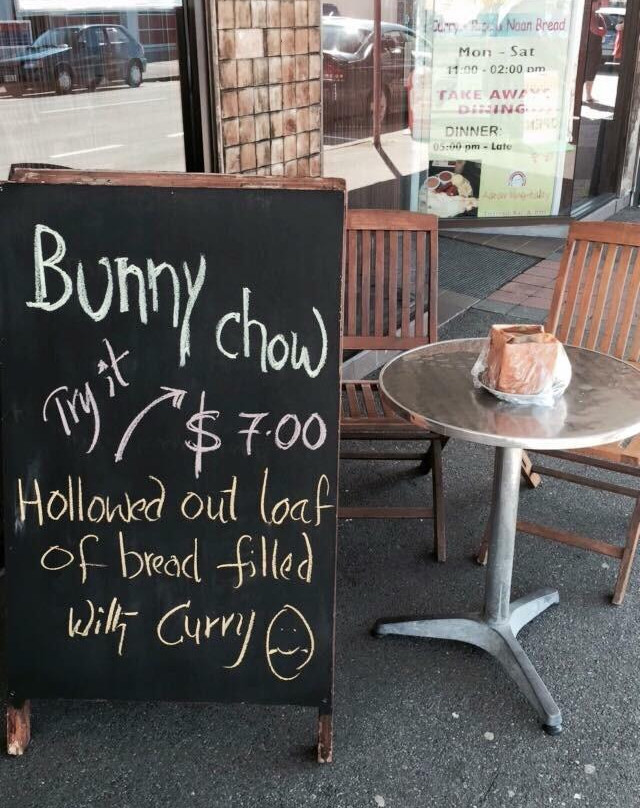 Bunny
chow
Try it
$7.00
Hollowed out loaf
of bread filled
with Curry
Naan Bread
Mon - Sat
11:00 - 02:00 pm
TAKE AWAYS
DINING
DINNER:
05:00 pm - Late